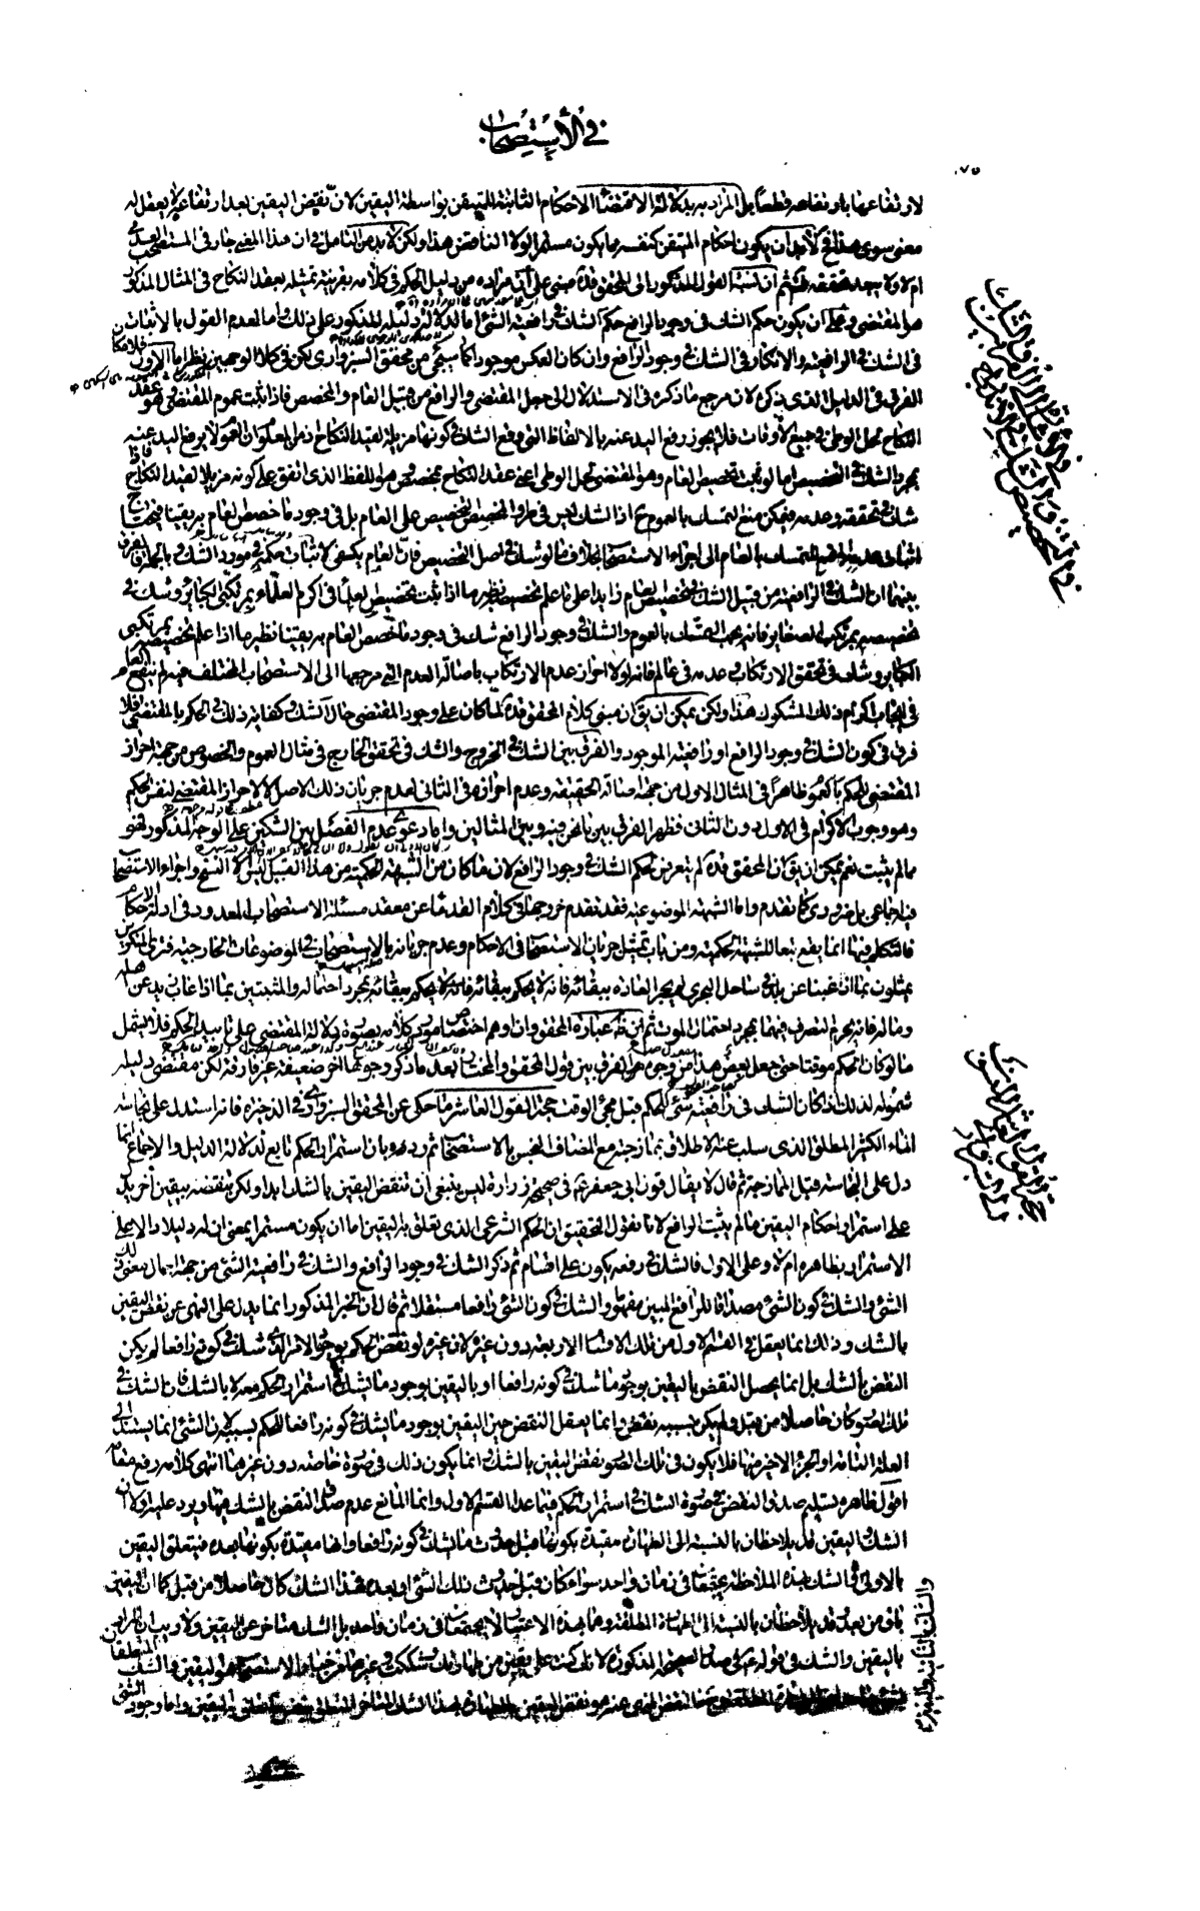 في الاستصحاب
لارتفاعها بارتفاعه قطعا بل المراد به بدلالة الاقتضاء الاحكام الثابتة للمتيقن بواسطة اليقين لان نقيض اليقين بعد ارتفاعه لا يعقل له
معنى سوى هذا
ام لا ثم ان نسبة القول المذكور الى المحقق قده مبني على ان مراده من دليل الحكم في كلامه بقرينة تمثيله بعقد النكاح في المثال المذكور
هو المقتضي وعلى ان يكون حكم الشك في وجود الرافع حكم الشك في رافعية الشيء اما لدلالة دليله المذكور على ذلك واما لعدم القول بالاثبات
في الشك في الرافعية والانكار في الشك في وجود الرافع وان كان العكس موجودا كما سيجيء من المحقق السبزواري لكن في كلا الوجهين نظر اما الاول
الفرق في الدليل الذي ذكره لان مرجع ما ذكره في الاستدلال الى جعل المقتضي والرافع من قبيل العام والمخصص فاذا ثبت عموم المقتضي وهو عقد
النكاح لحل الوطي في جميع الاوقات فلا يجوز رفع اليد عنه بالالفاظ التي وقع الشك في كونها مزيلة لقيد النكاح اذ من المعلوم ان العموم لا يرفع اليد عنه
بمجرد الشك في التخصيص اما لو ثبت تخصيص العام وهو المقتضي لحل الوطي اعني عقد النكاح بمخصص وهو اللفظ الذي اتفق على كونه مزيلا لقيد النكاح فاذا
شك في تحققه وعدمه فيمكن منع التمسك بالعموم ح اذ الشك ليس في طرو المخصص على العام بل في وجود ما خصص العام به يقينا فيحتاج
اثبات عدمه المتمم للتمسك بالعام الى اجراء الاستصحاب بخلاف ما لو شك في اصل التخصيص فان العام يكفي لاثبات حكمه في مورد الشك وبالجملة فالفرق
بينهما ان الشك في الرافعية من قبيل الشك في تخصيص العام زايدا على ما علم تخصيصه نظير ما اذا ثبت تخصيص العلماء في اكرم العلماء بمرتكبي الكبائر وشك في
تخصيصه بمرتكب الصغاير فانه يجب التمسك بالعموم والشك في وجود الرافع شك في وجود ما خصص العام به يقينا نظير ما اذا علم تخصيصه بمرتكبي
الكباير وشك في تحقق الارتكاب وعدمه في عالم فانه لولا احراز عدم الارتكاب باصالة العدم التي مرجعها الى الاستصحاب المختلف فيه لم ينفع العام
في ايجاب اكرام ذلك المشكوك هذا ولكن يمكن ان يق ان مبنى كلام المحقق قده لما كان على وجود المقتضي حال الشك وكفاية ذلك في الحكم بالمقتضى فلا
فرق في كون الشك في وجود الرافع او رافعية الموجود والفرق بين الشك في الخروج والشك في تحقق الخارج في مثال العموم والخصوص من جهة احراز
المقتضي للحكم بالعموم ظاهرا في المثال الاول من جهة اصالة الحقيقة وعدم احرازه في الثاني لعدم جريان ذلك الاصل لا لاحراز المقتضي لنفس الحكم
وهو وجوب الاكرام في الاول دون الثاني فظهر الفرق بين ما نحن فيه وبين المثالين واما دعوى عدم الفصل بين الشكين على الوجه المذكور فهو
مما لم يثبت نعم يمكن ان يق ان المحقق قده لم يتعرض لحكم الشك في وجود الرافع لان ما كان من الشبهة الحكمية من هذا القبيل ليس الا النسخ واجراء الاستصحاب
فيه اجماعي بل ضروري كما تقدم واما الشبهة الموضوعية فقد تقدم خروجها في كلام القدماء عن معقد مسئلة الاستصحاب المعدود في ادلة الاحكام
فالتكلم فيها انما يقع تبعا للشبهة الحكمية ومن باب تمثيل جريان الاستصحاب في الاحكام وعدم جريانه بالاستصحاب في الموضوعات الخارجية فترى المنكرين
يمثلون بما اذا غبنا عن بلد في ساحل البحر لم يجر العادة ببقائه فانه لا يحكم ببقائه بمجرد احتماله والمثبتين بما اذا غاب زيد عن اهله
وماله فانه يحرم التصرف فيهما بمجرد احتمال الموت ثم ان ظ عبارة المحقق وان اوهم اختصاص مورد كلامه بصورة دلالة المقتضي على تاييد الحكم فلا يشمل
ما لو كان الحكم موقتا حتى جعل بعض هذا من وجوه الفرق بين قول المحقق والمختار بعد ما ذكر وجوها اخر ضعيفة غير فارقة لكن مقتضى دليله
شموله لذلك اذا كان الشك في رافعية شيء للحكم قبل مجيء الوقت حجة القول العاشر ما حكى عن المحقق السبزواري في الذخيرة فانه استدل على نجاسة
الماء الكثير المطلق الذي سلب عنه الاطلاق بممازجته مع المضاف النجس بالاستصحاب ثم رده بان استمرار الحكم تابع لدلالة الدليل والاجماع انما
دل على النجاسة قبل الممازجة ثم قال لا يقال قول ابي جعفر ع في صحيحة زرارة ليس ينبغي ان تنقض اليقين بالشك ابدا ولكن تنقضه بيقين آخر يدل
على استمرار احكام اليقين ما لم يثبت الرافع لانا نقول التحقيق ان الحكم الشرعي الذي تعلق به اليقين اما ان يكون مستمرا بمعنى ان له دليلا دالا على
الاستمرار بظاهره ام لا وعلى الاول فالشك في رفعه يكون على اقسام ثم ذكر الشك في وجود الرافع والشك في رافعية الشيء من جهة اجمال معنى ذلك
الشيء والشك في كون الشيء مصداقا للرافع المبين مفهوما والشك في كون الشيء رافعا مستقلا ثم قال ان الخبر المذكور انما يدل على النهي عن نقض اليقين
بالشك وذلك انما يعقل في القسم الاول من تلك الاقسام الاربعة دون غيره لان غيره لو نقض الحكم بوجود الامر الذي شك في كونه رافعا لم يكن
النقض بالشك بل انما يحصل النقض باليقين بوجود ما شك في كونه رافعا او باليقين بوجود ما يشك في استمرار الحكم معه لا بالشك فان الشك في
تلك الصور كان حاصلا من قبل ولم يكن بسببه نقض وانما يعقل النقض حين اليقين بوجود ما يشك في كونه رافعا للحكم بسببه لان الشيء انما يستند الى
العلة التامة او الجزء الاخير منها فلا يكون في تلك الصور نقض اليقين بالشك وانما يكون ذلك في صورة خاصة دون غيرها انتهى كلامه رفع مقامه
اقول ظاهره تسليم صدق النقض في صورة الشك في استمرار الحكم فيما عدا القسم الاول وانما المانع عدم صدق النقض بالشك فيها ويرد عليه اولا ان
الشك واليقين قد يلاحظان بالنسبة الى الطهارة مقيدة بكونها قبل حدوث ما يشك في كونه رافعا واخرى مقيدة بكونها بعده فيتعلق اليقين
بالاولى والشك بالثانية فيهذه الملاحظة يجتمعان في زمان واحد سواء كان قبل حدوث ذلك الشيء او بعده فهذا الشك كان حاصلا من قبل كما ان اليقين
باق من بعد وقد يلاحظان بالنسبة الى الطهارة المطلقة وهما بهذا الاعتبار لا يجتمعان في زمان واحد بل الشك متاخر عن اليقين ولا ريب ان المراد
باليقين والشك في قوله ع في صدر الصحيحة المذكورة لانك كنت على يقين من طهارتك وشككت وغيرها من اخبار الاستصحاب هو اليقين والشك المتعلقان
حجة القول العاشر للمحقق السبزواري